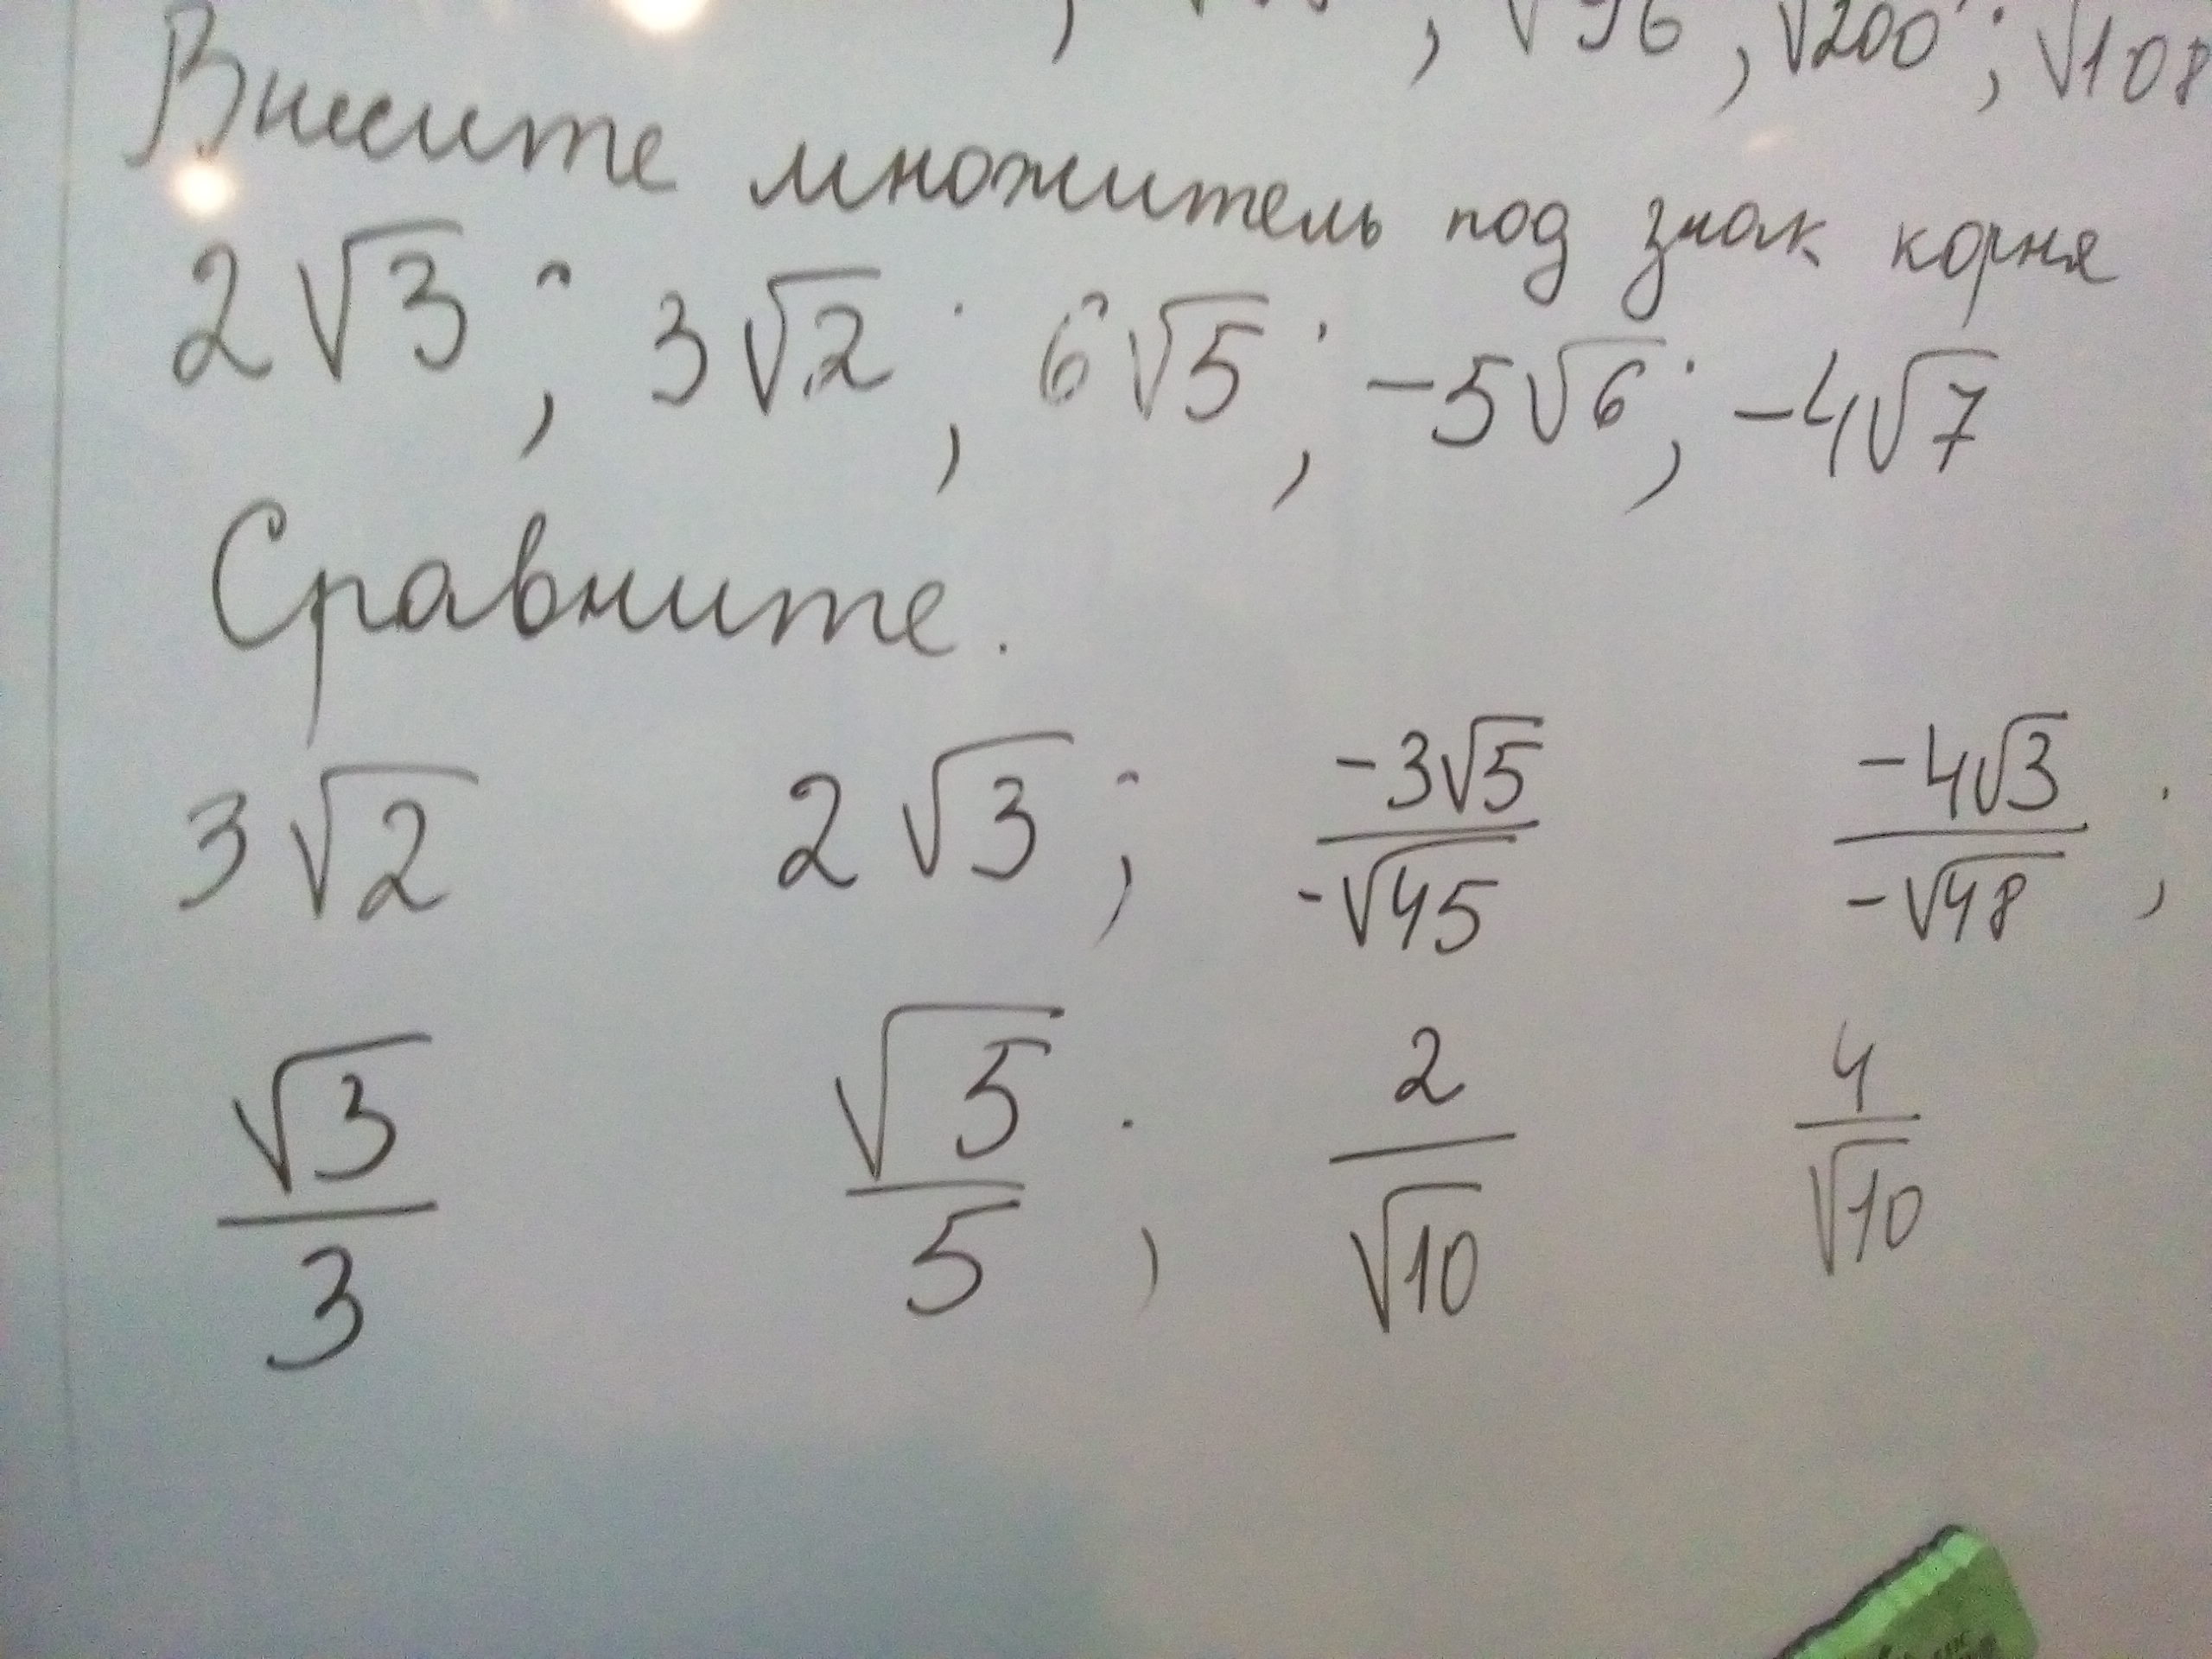 ; √96; √200; √108
Внесите множитель под знак корня
2√3; 3√2; 6√5; -5√6; -4√7
Сравните.
3√2 2√3; -3√5/-√45 -4√3/-√48;
√3/3 √5/5; 2/√10 4/√10